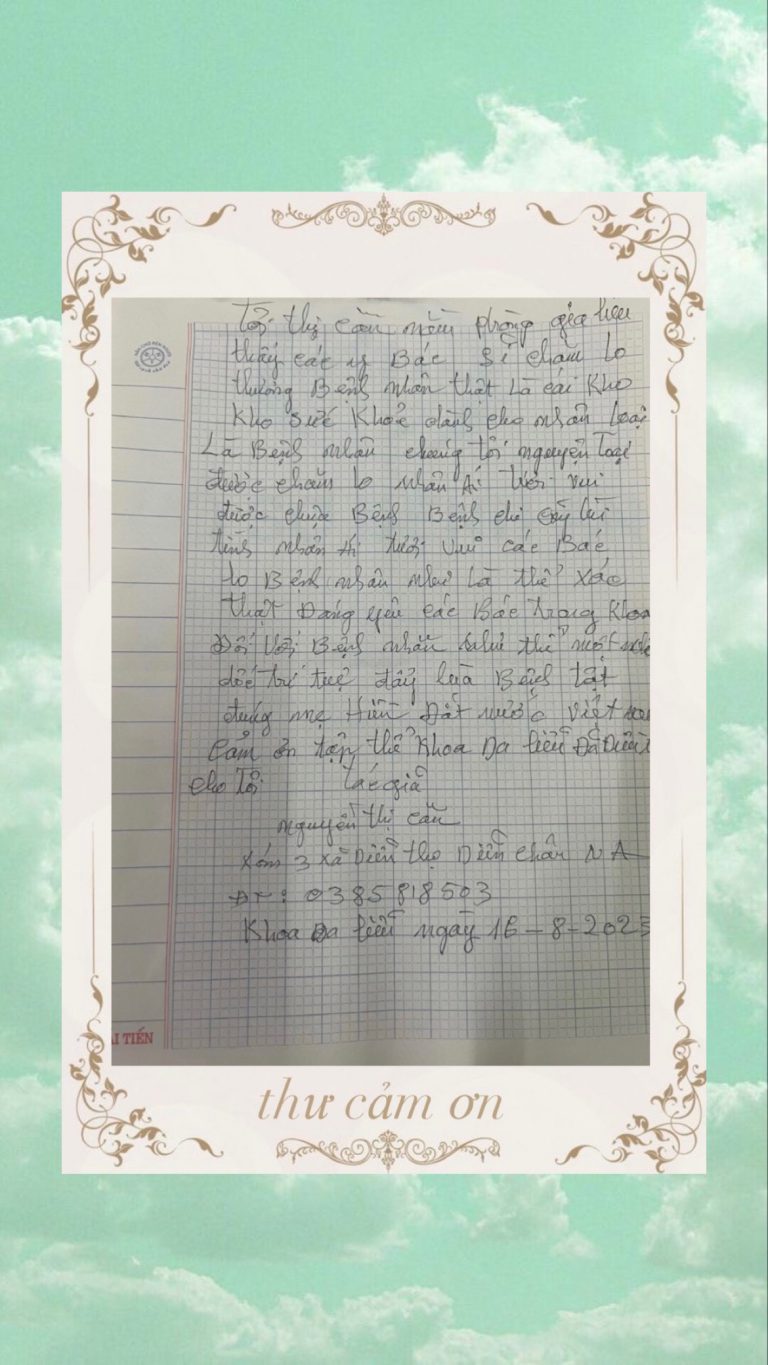 Tôi thị Cần nằm phòng
thấy các y Bác sĩ chăm lo
thương Bệnh nhân thật Là cái Kho
Kho sức Khoẻ dành cho nhân Loại
Là Bệnh nhân chúng tôi nguyện
được chăm lo nhân Ái vui
được chữa Bệnh Bệnh
tình nhân Ái tươi vui các Bác
lo Bệnh nhân như Là thể xác
thật Đáng yêu các Bác trong Khoa
Đối với Bệnh nhân như thể một
trí tuệ đẩy lùa Bệnh tật
Đất nước Việt
Cảm ơn tập thể Khoa Da liễu Đã Điều
cho Tôi tác giả
nguyễn thị cần
Xóm 3 xã Diễn thọ Diễn châu N A
ĐT: 0385818503
Khoa Da liễu ngày 16-8-2023
ẢI TIẾN
thư cảm ơn